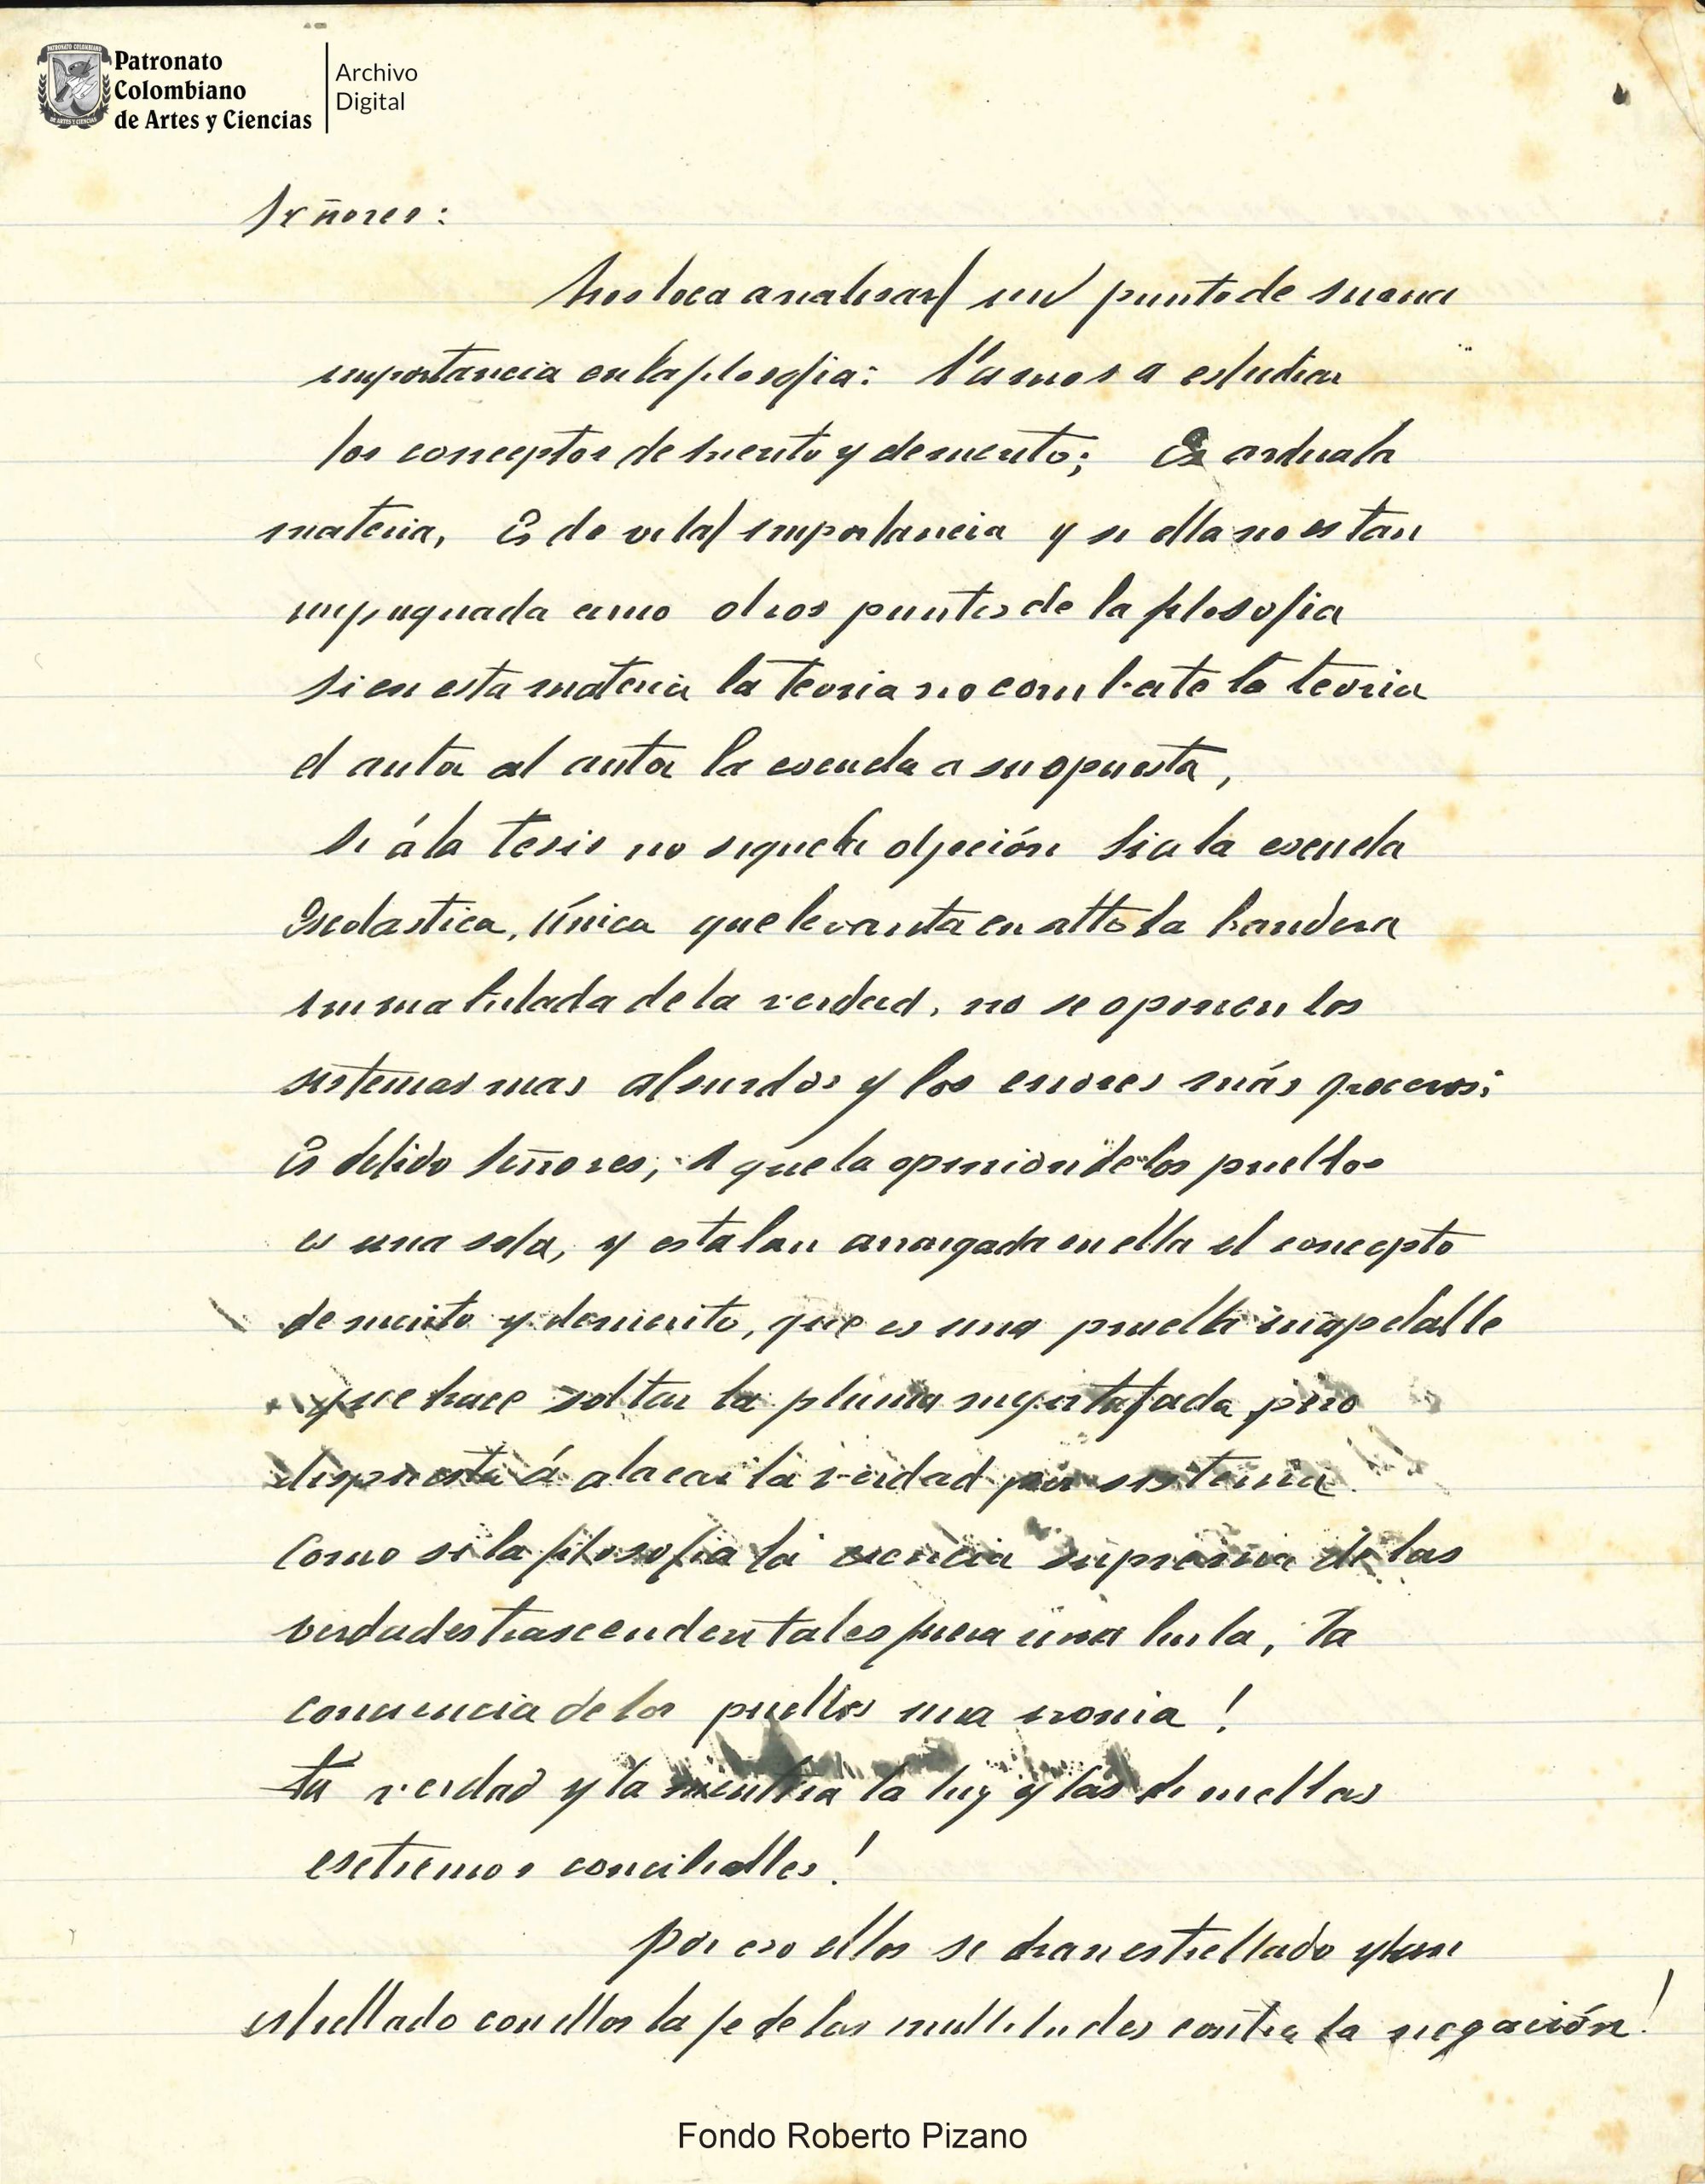 Patronato
Colombiano
de Artes y Ciencias
Archivo
Digital
Señores:
Nos toca analisar un punto de suma
importancia en la filosofia: Vamos a estudiar
los conceptos de merito y demerito; Es ardua la
materia, Es de vital importancia y si ella no es tan
impugnada como otros puntos de la filosofia
si en esta materia la teoria no combate la teoria
el autor al autor la escuela a su opuesta,
si á la tesis no sigue la objeción si a la escuela
Escolastica, única que levanta en alto la bandera
inmaculada de la verdad, no se oponen los
sistemas mas absurdos y los errores más groceros;
Es debido señores, a que la opinion de los pueblos
es una sola, y esta tan arraigada en ella el concepto
de merito y demerito, que es una prueba inapelable
que hace soltar la pluma mejor tajada pero
dispuesta á atacar la verdad por sistema.
Como si la filosofia la ciencia suprema de las
verdades trascendentales fuera una burla, la
conciencia de los pueblos una ironia!
la verdad y la mentira la luz y las
estremos conciliables!
por eso ellos se han estrellado y han
estrellado con ellos la fe de las multitudes contra la negación!
Fondo Roberto Pizano